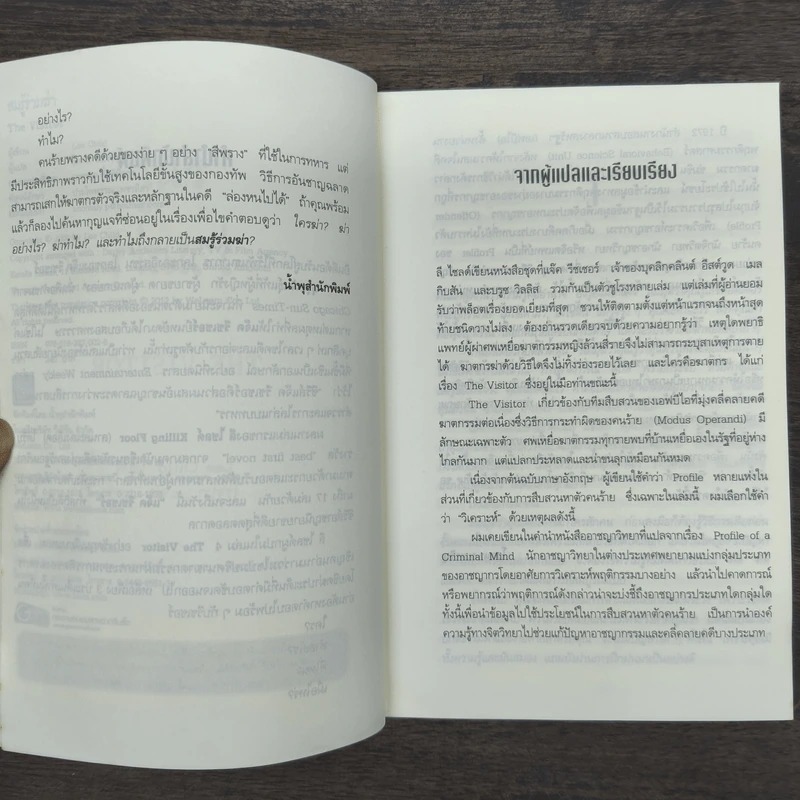 อย่างไร?
ทำไม?
คนร้ายพรางคดีด้วยของง่าย ๆ อย่าง "สีพราง" ที่ใช้ในการทหาร แต่
มีประสิทธิภาพราวกับใช้เทคโนโลยีขั้นสูงของกองทัพ วิธีการอันชาญฉลาด
สามารถเสกให้ฆาตกรตัวจริงและหลักฐานในคดี "ล่องหนไปได้" ถ้าคุณพร้อม
แล้วก็ลองไปค้นหากุญแจที่ซ่อนอยู่ในเรื่องเพื่อไขคำตอบดูว่า ใครฆ่า? ฆ่า
อย่างไร? ฆ่าทำไม? และทำไมถึงกลายเป็นสมรู้ร่วมฆ่า?
น้ำพุสำนักพิมพ์
จากผู้แปลและเรียบเรียง
ลี ไชลด์เขียนหนังสือชุดที่แจ๊ค รีชเชอร์ เจ้าของบุคลิกคลินต์ อีสต์วูด เมล
กิบสัน และบรูซ วิลลิส รวมกันเป็นตัวชูโรงหลายเล่ม แต่เล่มที่ผู้อ่านยอม
รับว่าพล็อตเรื่องยอดเยี่ยมที่สุด ชวนให้ติดตามตั้งแต่หน้าแรกจนถึงหน้าสุด
ท้ายชนิดวางไม่ลง ต้องอ่านรวดเดียวจบด้วยความอยากรู้ว่า เหตุใดพยาธิ
แพทย์ผู้ผ่าศพเหยื่อฆาตกรรมหญิงล้วนสี่รายจึงไม่สามารถระบุสาเหตุการตาย
ได้ ฆาตกรฆ่าด้วยวิธีใดจึงไม่ทิ้งร่องรอยไว้เลย และใครคือฆาตกร ได้แก่
เรื่อง The Visitor ซึ่งอยู่ในมือท่านขณะนี้
The Visitor เกี่ยวข้องกับทีมสืบสวนของเอฟบีไอที่มุ่งคลี่คลายคดี
ฆาตกรรมต่อเนื่องซึ่งวิธีการกระทำผิดของคนร้าย (Modus Operandi) มี
ลักษณะเฉพาะตัว ศพเหยื่อฆาตกรรมทุกรายพบที่บ้านเหยื่อเองในรัฐที่อยู่ห่าง
ไกลกันมาก แต่แปลกประหลาดและน่าขนลุกเหมือนกันหมด
เนื่องจากต้นฉบับภาษาอังกฤษ ผู้เขียนใช้คำว่า Profile หลายแห่งใน
ส่วนที่เกี่ยวข้องกับการสืบสวนหาตัวคนร้าย ซึ่งเฉพาะในเล่มนี้ ผมเลือกใช้คำ
ว่า "วิเคราะห์" ด้วยเหตุผลดังนี้
ผมเคยเขียนในคำนำหนังสืออาชญาวิทยาที่แปลจากเรื่อง Profile of a
Criminal Mind นักอาชญาวิทยาในต่างประเทศพยายามแบ่งกลุ่มประเภท
ของอาชญากรโดยอาศัยการวิเคราะห์พฤติกรรมบางอย่าง แล้วนำไปคาดการณ์
หรือพยากรณ์ว่าพฤติการณ์ดังกล่าวน่าจะบ่งชี้ถึงอาชญากรประเภทใดกลุ่มใด
ทั้งนี้เพื่อนำข้อมูลไปใช้ประโยชน์ในการสืบสวนหาตัวคนร้าย เป็นการนำองค์
ความรู้ทางจิตวิทยาไปช่วยแก้ปัญหาอาชญากรรมและคลี่คลายคดีบางประเภท